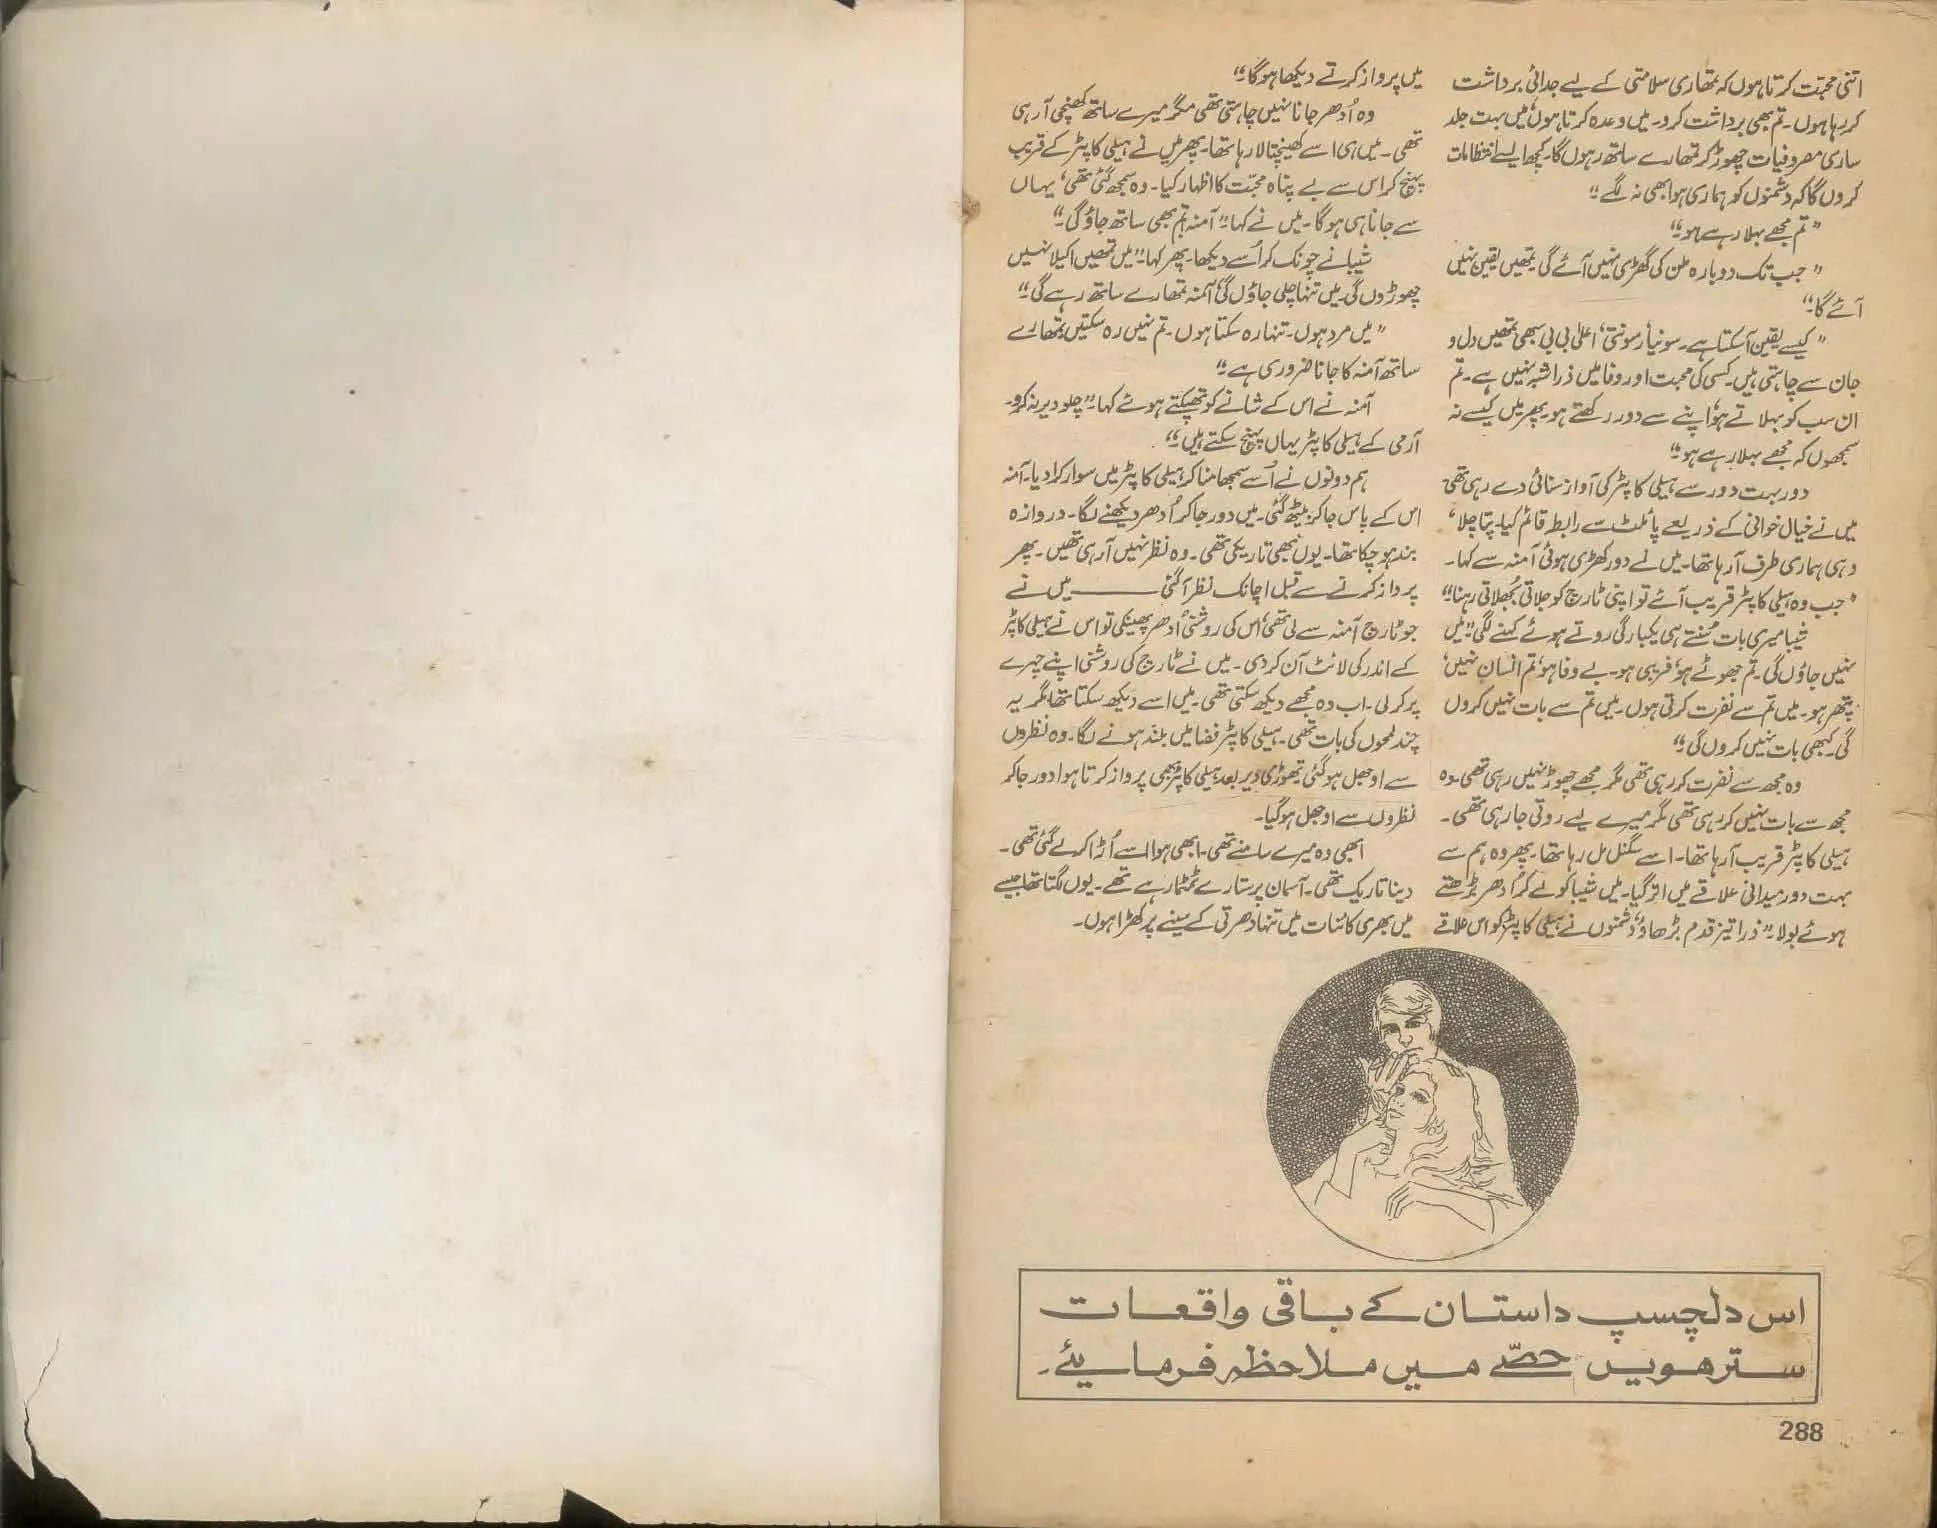 اتنی محبت کرتا ہوں کہ تمھاری سلامتی کے لیے جدائی برداشت
کر رہا ہوں۔ تم بھی برداشت کرو۔ میں وعدہ کرتا ہوں، میں بہت جلد
ساری مصروفیات چھوڑ کر تمھارے ساتھ رہوں گا۔ کچھ ایسے انتظامات
کروں گا کہ دشمنوں کو ہماری ہوا بھی نہ لگے۔"
"تم مجھے بہلا رہے ہو۔"
"جب تک دوبارہ ملن کی گھڑی نہیں آئے گی تمھیں یقین نہیں
آئے گا۔"
"کیسے یقین آسکتا ہے۔ سونیا، رسونتی، اعلیٰ بی بی سبھی تمھیں دل و
جان سے چاہتی ہیں۔ کسی کی محبت اور وفا میں ذرا شبہ نہیں ہے۔ تم
ان سب کو بہلاتے ہو، اپنے سے دور رکھتے ہو۔ پھر میں کیسے نہ
سمجھوں کہ مجھے بہلا رہے ہو۔"
دور بہت دور سے ہیلی کاپٹر کی آواز سنائی دے رہی تھی۔
میں نے خیال خوانی کے ذریعے پائلٹ سے رابطہ قائم کیا۔ پتا چلا،
وہی ہماری طرف آرہا تھا۔ میں نے دور کھڑی ہوئی آمنہ سے کہا۔
"جب وہ ہیلی کاپٹر قریب آئے تو اپنی ٹارچ کو جلاتی بجھاتی رہنا۔"
شیبا میری بات سُنتے ہی یکبارگی روتے ہوئے کہنے لگی "میں
نہیں جاؤں گی۔ تم جھوٹے ہو، فریبی ہو۔ بے وفا ہو، تم انسان نہیں،
پتھر ہو۔ میں تم سے نفرت کرتی ہوں۔ میں تم سے بات نہیں کروں
گی۔ کبھی بات نہیں کروں گی۔"
وہ مجھ سے نفرت کر رہی تھی مگر مجھے چھوڑ نہیں رہی تھی۔ وہ
مجھ سے بات نہیں کر رہی تھی مگر میرے لیے روتی جا رہی تھی۔
ہیلی کاپٹر قریب آرہا تھا۔ اسے سگنل مل رہا تھا۔ پھر وہ ہم سے
بہت دور میدانی علاقے میں اتر گیا۔ میں شیبا کو لے کر اُدھر بڑھتے
ہوئے بولا۔ "ذرا تیز قدم بڑھاؤ، دشمنوں نے ہیلی کاپٹر کو اس علاقے
میں پرواز کرتے دیکھا ہوگا۔"
وہ اُدھر جانا نہیں چاہتی تھی مگر میرے ساتھ کھنچی آرہی
تھی۔ میں ہی اسے کھینچتا لا رہا تھا۔ پھر میں نے ہیلی کاپٹر کے قریب
پہنچ کر اس سے بے پناہ محبت کا اظہار کیا۔ وہ سمجھ گئی تھی، یہاں
سے جانا ہی ہوگا۔ میں نے کہا "آمنہ تم بھی ساتھ جاؤ گی۔"
شیبا نے چونک کر اُسے دیکھا۔ پھر کہا۔ "میں تمھیں اکیلا نہیں
چھوڑوں گی۔ میں تنہا چلی جاؤں گی، آمنہ تمھارے ساتھ رہے گی۔"
"میں مرد ہوں۔ تنہا رہ سکتا ہوں۔ تم نہیں رہ سکتیں۔ تمھارے
ساتھ آمنہ کا جانا ضروری ہے۔"
آمنہ نے اس کے شانے کو تھپکتے ہوئے کہا۔ "چلو دیر نہ کرو۔
آرمی کے ہیلی کاپٹر یہاں پہنچ سکتے ہیں۔"
ہم دونوں نے اُسے سمجھا منا کر ہیلی کاپٹر میں سوار کرا دیا۔ آمنہ
اس کے پاس جا کر بیٹھ گئی۔ میں دور جا کر اُدھر دیکھنے لگا۔ دروازہ
بند ہو چکا تھا۔ یوں بھی تاریکی تھی۔ وہ نظر نہیں آرہی تھیں۔ پھر
پرواز کرنے سے قبل اچانک نظر آگئی ـــــ میں نے
جو ٹارچ آمنہ سے لی تھی، اُس کی روشنی اُدھر پھینکی تو اس نے ہیلی کاپٹر
کے اندر کی لائٹ آن کر دی۔ میں نے ٹارچ کی روشنی اپنے چہرے
پر کر لی۔ اب وہ مجھے دیکھ سکتی تھی۔ میں اسے دیکھ سکتا تھا مگر یہ
چند لمحوں کی بات تھی۔ ہیلی کاپٹر فضا میں بلند ہونے لگا۔ وہ نظروں
سے اوجھل ہو گئی۔ تھوڑی دیر بعد ہیلی کاپٹر بھی پرواز کرتا ہوا دور جا کر
نظروں سے اوجھل ہو گیا۔
ابھی وہ میرے سامنے تھی۔ ابھی ہوا اسے اُڑا کر لے گئی تھی۔
دنیا تاریک تھی۔ آسمان پر ستارے ٹمٹما رہے تھے۔ یوں لگتا تھا جیسے
میں بھری کائنات میں تنہا دھرتی کے سینے پر کھڑا ہوں۔
اس دلچسپ داستان کے باقی واقعات
سترھویں حصّے میں ملاحظہ فرمایئے۔
288